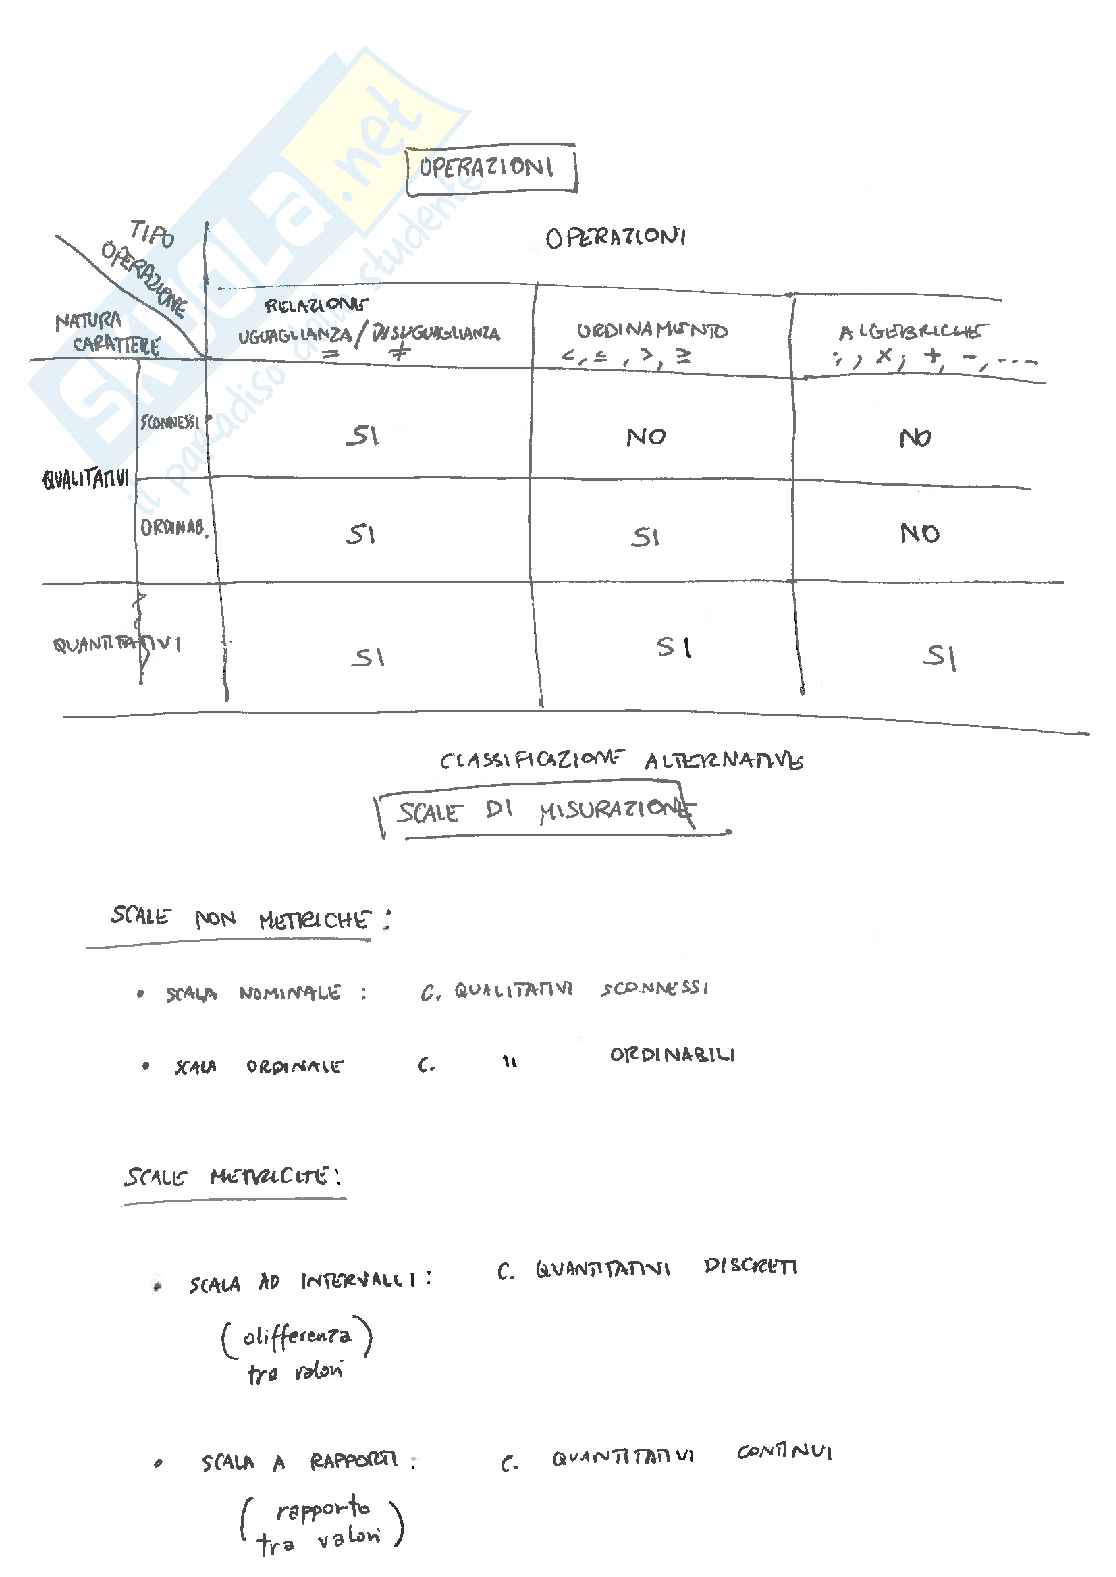 SKUOLA.net
il paradiso dello studente
OPERAZIONI
TIPO
OPERAZIONE
OPERAZIONI
NATURA
CARATTERE
RELAZIONE
UGUAGLIANZA / DISUGUAGLIANZA
= ≠
ORDINAMENTO
<, ≤, >, ≥
ALGEBRICHE
:, x, +, -, ...
QUALITATIVI
SCONNESSI
SI NO NO
ORDINAB.
SI SI NO
QUANTITATIVI
SI SI SI
CLASSIFICAZIONE ALTERNATIVE
SCALE DI MISURAZIONE
SCALE NON METRICHE:
• SCALA NOMINALE : C. QUALITATIVI SCONNESSI
• SCALA ORDINALE C. " ORDINABILI
SCALE METRICHE:
• SCALA AD INTERVALLI: C. QUANTITATIVI DISCRETI
(differenza
tra valori)
• SCALA A RAPPORTI: C. QUANTITATIVI CONTINUI
(rapporto
tra valori)